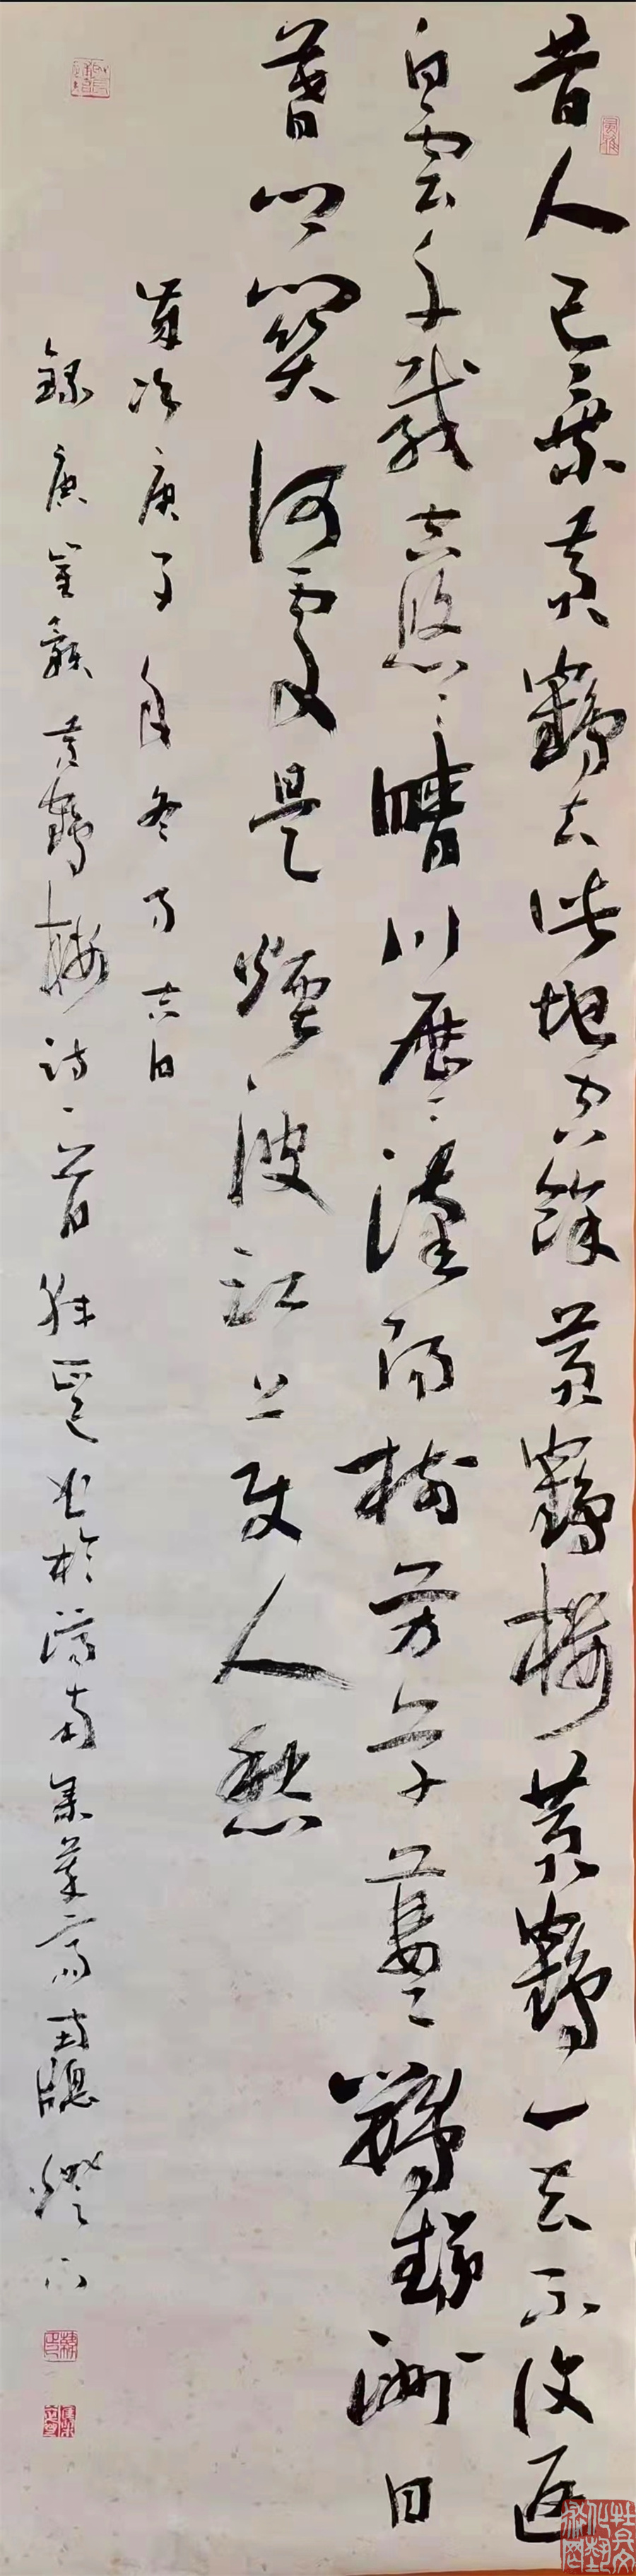 昔人已乘黄鶴去此地空餘黄鶴樓黄鶴一去不復返
白雲千載空悠々晴川歷々漢陽樹芳草萋々鸚鵡洲日
暮鄉關何處是煙波江上使人愁
歲次庚子年冬月吉日
錄唐崔顥黄鶴樓詩一首於濟南齋南窗燈下